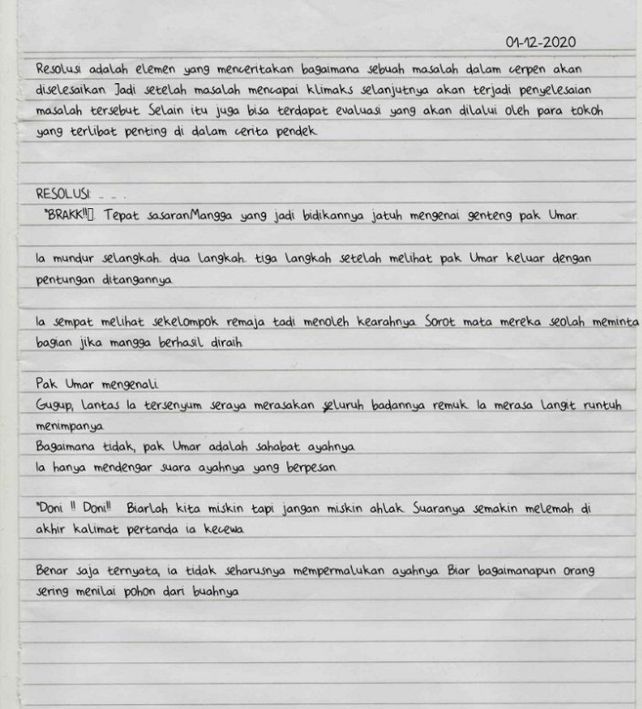 01-12-2020
Resolusi adalah elemen yang menceritakan bagaimana sebuah masalah dalam cerpen akan
diselesaikan Jadi setelah masalah mencapai klimaks selanjutnya akan terjadi penyelesaian
masalah tersebut Selain itu juga bisa terdapat evaluasi yang akan dilalui oleh para tokoh
yang terlibat penting di dalam cerita pendek
RESOLUSI . . . .
"BRAKK!!▯. Tepat sasaranMangga yang jadi bidikannya jatuh mengenai genteng pak Umar.
Ia mundur selangkah. dua langkah. tiga langkah setelah melihat pak Umar keluar dengan
pentungan ditangannya
Ia sempat melihat sekelompok remaja tadi menoleh kearahnya Sorot mata mereka seolah meminta
bagian jika mangga berhasil diraih
Pak Umar mengenali.
Gugup, lantas Ia tersenyum seraya merasakan seluruh badannya remuk Ia merasa langit runtuh
menimpanya
Bagaimana tidak, pak Umar adalah sahabat ayahnya
Ia hanya mendengar suara ayahnya yang berpesan
"Doni !! Doni!! Biarlah kita miskin tapi jangan miskin ahlak Suaranya semakin melemah di
akhir kalimat pertanda ia kecewa
Benar saja ternyata, ia tidak seharusnya mempermalukan ayahnya Biar bagaimanapun orang
sering menilai pohon dari buahnya